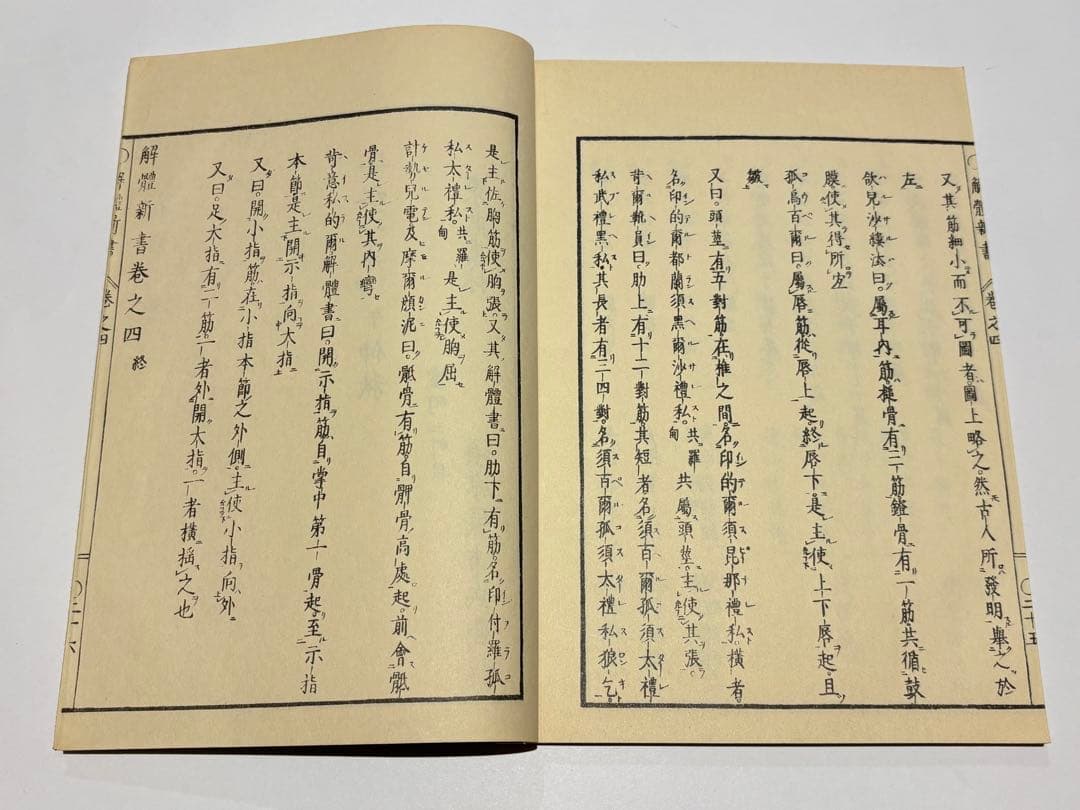 解體新書 卷之四 三十五
又其筋細小而不可圖者圖上略之然古人所發明舉之於
左
欲兒沙縷法曰屬耳內筋槌骨有二筋鐙骨有一筋共循鼓
膜使其得所左
孤烏百爾曰屬唇筋從唇上起終唇下是主使上下唇起且
皺
又曰頭莖有五對筋在椎之間名印的爾須昆那禮私橫者
名印的爾都蘭須黑爾沙禮私共羅甸共屬頭莖主使其張
背爾靴員曰肋上有十二對筋其短者名須百爾孤須太禮
私武禮黑私其長者有三四對名須百爾孤須太禮私狼乞
是主佐胸筋使胸張又其解體書曰肋下有筋名印付羅孤
私太禮私共羅甸是主使胸屈
計勢兒電及摩爾頗泥曰骶骨有筋自髀骨高處起前會骶
骨是主使其內彎
苛意私的爾解體書曰開示指筋自掌中第一骨起至示指
本節是主開示指向大指
又曰開小指筋在小指本節之外側主使小指向外
又曰足大指有二筋一者外開大指一者橫搖之也
解體新書卷之四終
解體新書 卷之四 三十六